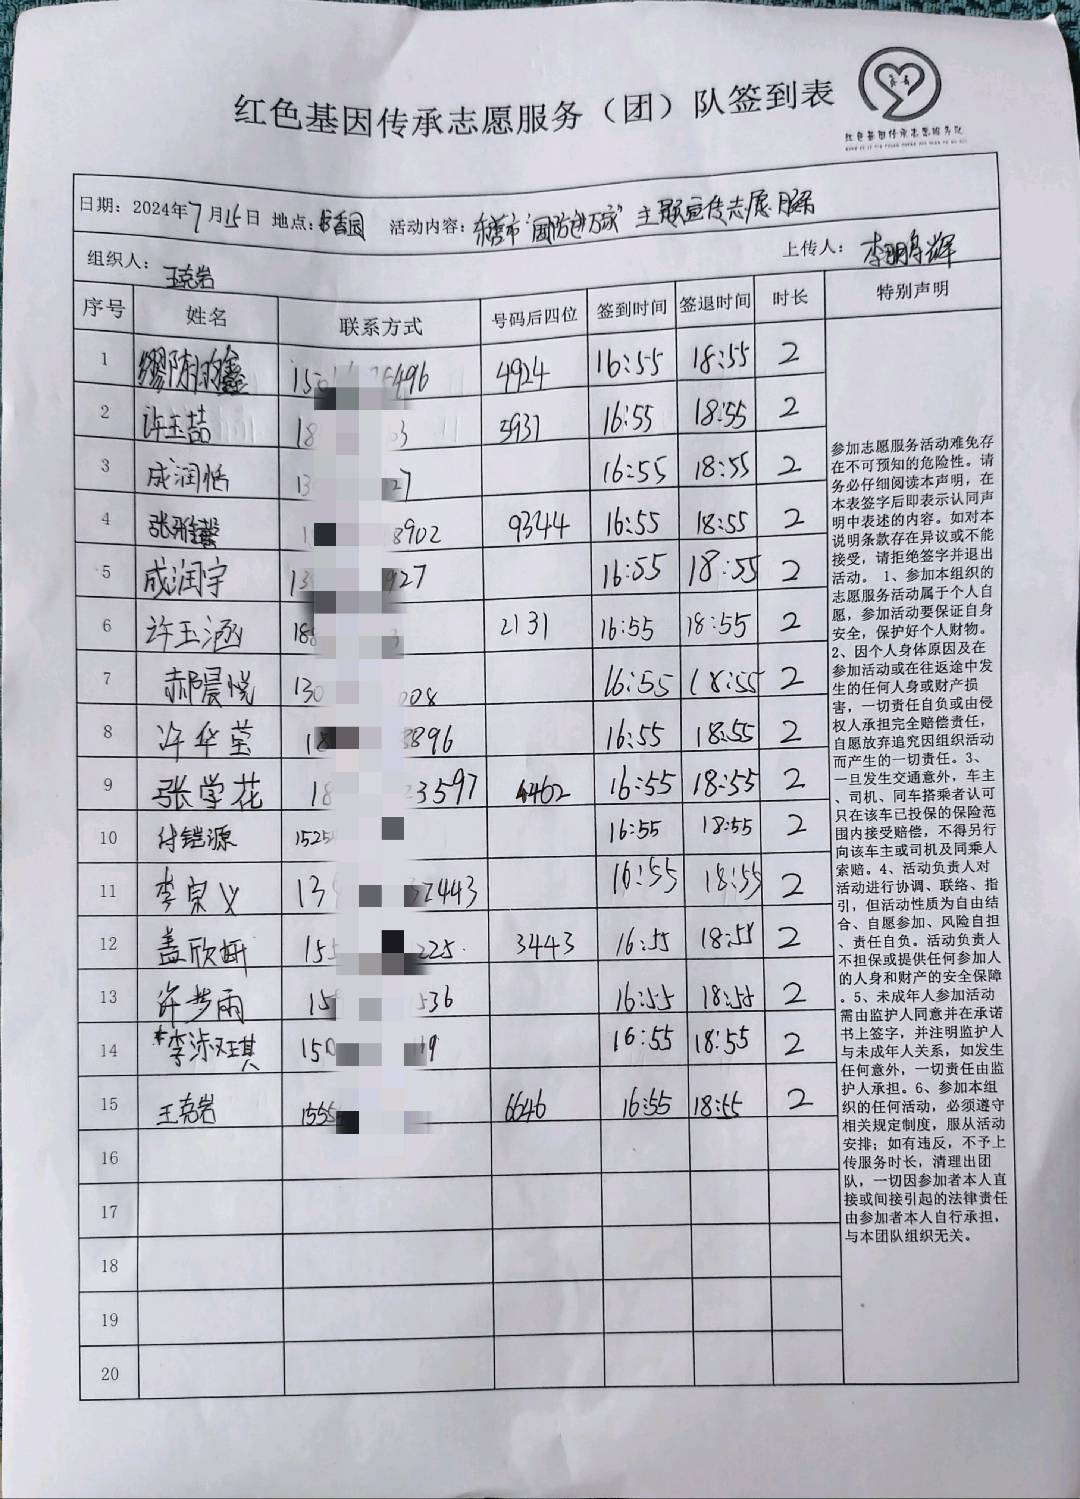 红色基因传承志愿服务（团）队签到表
红色基因传承志愿服务队
日期：2024年7月15日 地点：书香园 活动内容：东营市“国防万家”主题宣传志愿服务
组织人：王克岩 上传人：李明辉
序号 姓名 联系方式 号码后四位 签到时间 签退时间 时长 特别声明
1 496 4924 16:55 18:55 2
2 许玉喆 18 3 5937 16:55 18:55 2
3 成润恬 13 27 16:55 18:55 2
4 张雅馨 1 8902 9344 16:55 18:55 2
5 成润宇 13 927 16:55 18:55 2
6 许玉涵 18 2131 16:55 18:55 2
7 郝晨悦 130 008 16:55 18:55 2
8 许华莹 18 8896 16:55 18:55 2
9 张学花 18 3597 4462 16:55 18:55 2
10 付铠源 1525 16:55 18:55 2
11 李宗义 13 32443 16:55 18:55 2
12 盖欣妍 155 225 3443 16:55 18:55 2
13 许梦雨 15 536 16:55 18:55 2
14 150 19 16:55 18:55 2
15 王克岩 1555 6646 16:55 18:55 2
16
17
18
19
20
参加志愿服务活动难免存
在不可预知的危险性。请
务必仔细阅读本声明，在
本表签字后即表示认同声
明中表述的内容。如对本
说明条款存在异议或不能
接受，请拒绝签字并退出
活动。 1、参加本组织的
志愿服务活动属于个人自
愿，参加活动要保证自身
安全，保护好个人财物。
2、因个人身体原因及在
参加活动或在往返途中发
生的任何人身或财产损
害，一切责任自负或由侵
权人承担完全赔偿责任，
自愿放弃追究因组织活动
而产生的一切责任。3、
一旦发生交通意外，车主
、司机、同车搭乘者认可
只在该车已投保的保险范
围内接受赔偿，不得另行
向该车主或司机及同乘人
索赔。4、活动负责人对
活动进行协调、联络、指
引，但活动性质为自由结
合、自愿参加、风险自担
、责任自负。活动负责人
不担保或提供任何参加人
的人身和财产的安全保障
。5、未成年人参加活动
需由监护人同意并在承诺
书上签字，并注明监护人
与未成年人关系，如发生
任何意外，一切责任由监
护人承担。6、参加本组
织的任何活动，必须遵守
相关规定制度，服从活动
安排；如有违反，不予上
传服务时长，清理出团
队，一切因参加者本人直
接或间接引起的法律责任
由参加者本人自行承担，
与本团队组织无关。